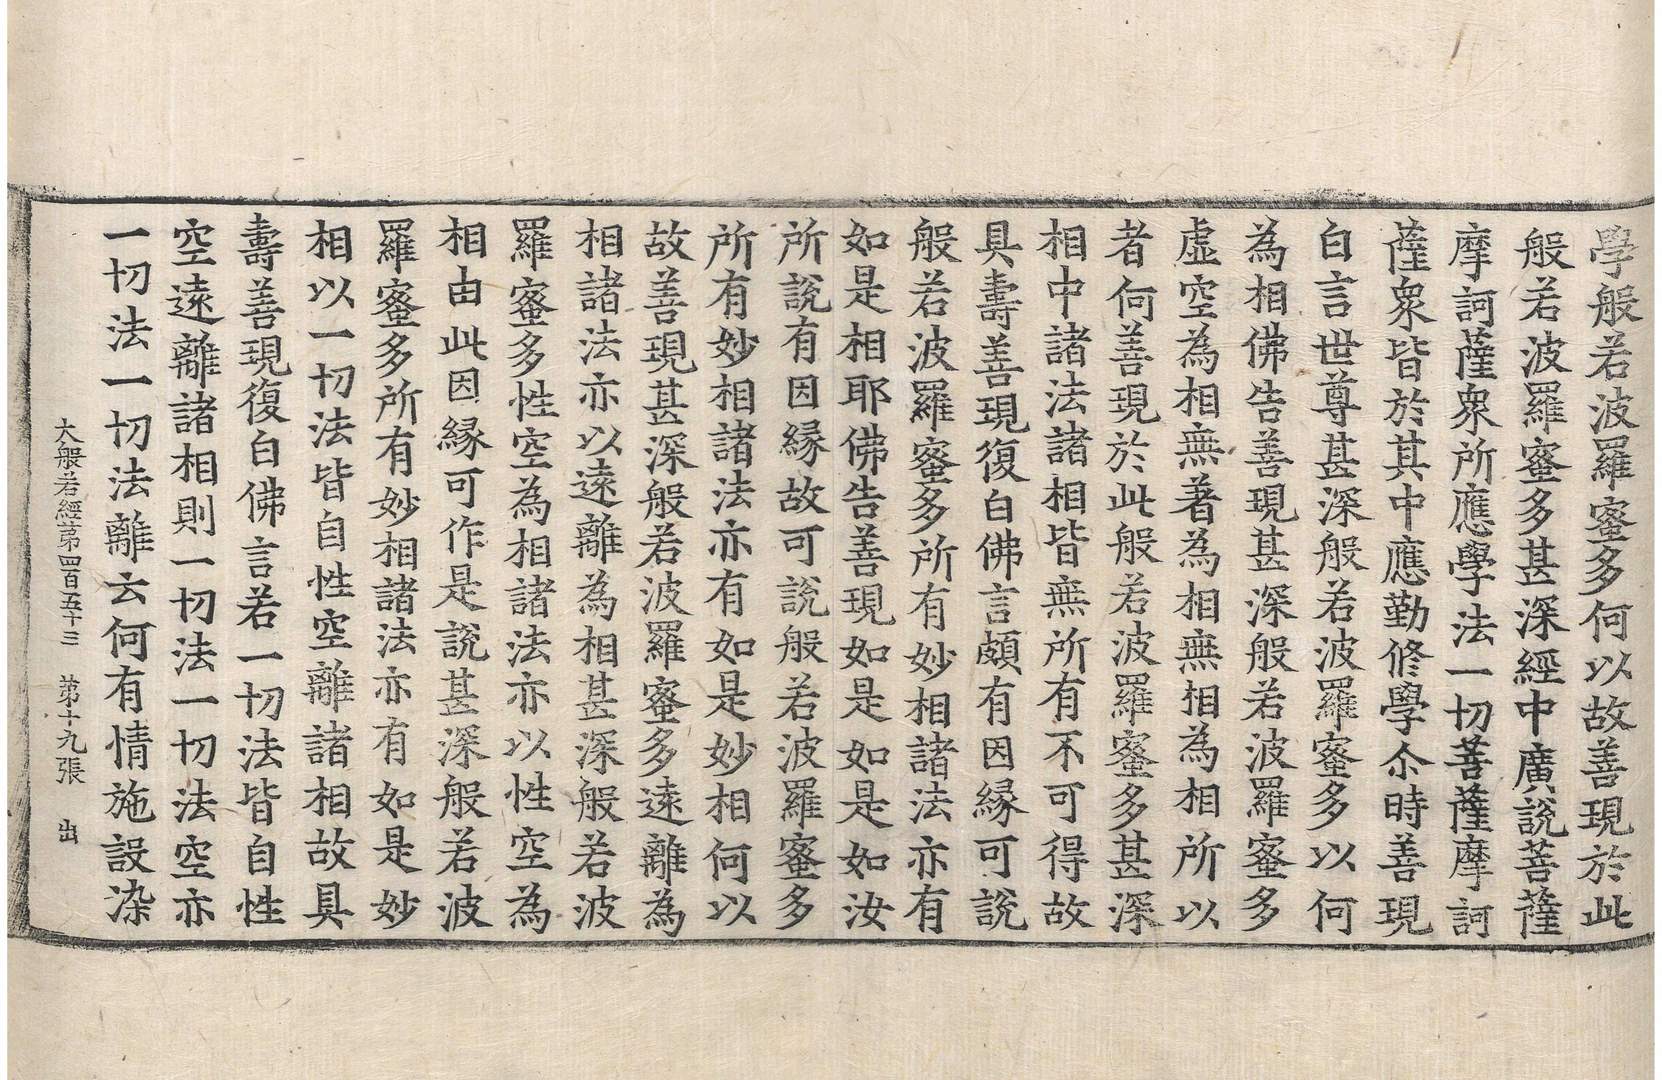 學般若波羅蜜多何以故善現於此
般若波羅蜜多甚深經中廣說菩薩
摩訶薩衆所應學法一切菩薩摩訶
薩衆皆於其中應勤修學尒時善現
白言世尊甚深般若波羅蜜多以何
為相佛告善現甚深般若波羅蜜多
虛空為相無著為相無相為相所以
者何善現於此般若波羅蜜多甚深
相中諸法諸相皆無所有不可得故
具壽善現復白佛言頗有因緣可說
般若波羅蜜多所有妙相諸法亦有
如是相耶佛告善現如是如是如汝
所說有因緣故可說般若波羅蜜多
所有妙相諸法亦有如是妙相何以
故善現甚深般若波羅蜜多遠離為
相諸法亦以遠離為相甚深般若波
羅蜜多性空為相諸法亦以性空為
相由此因緣可作是說甚深般若波
羅蜜多所有妙相諸法亦有如是妙
相以一切法皆自性空離諸相故具
壽善現復白佛言若一切法皆自性
空遠離諸相則一切法一切法空亦
一切法一切法離云何有情施設染
大般若經第四百五十三 第十九張 出